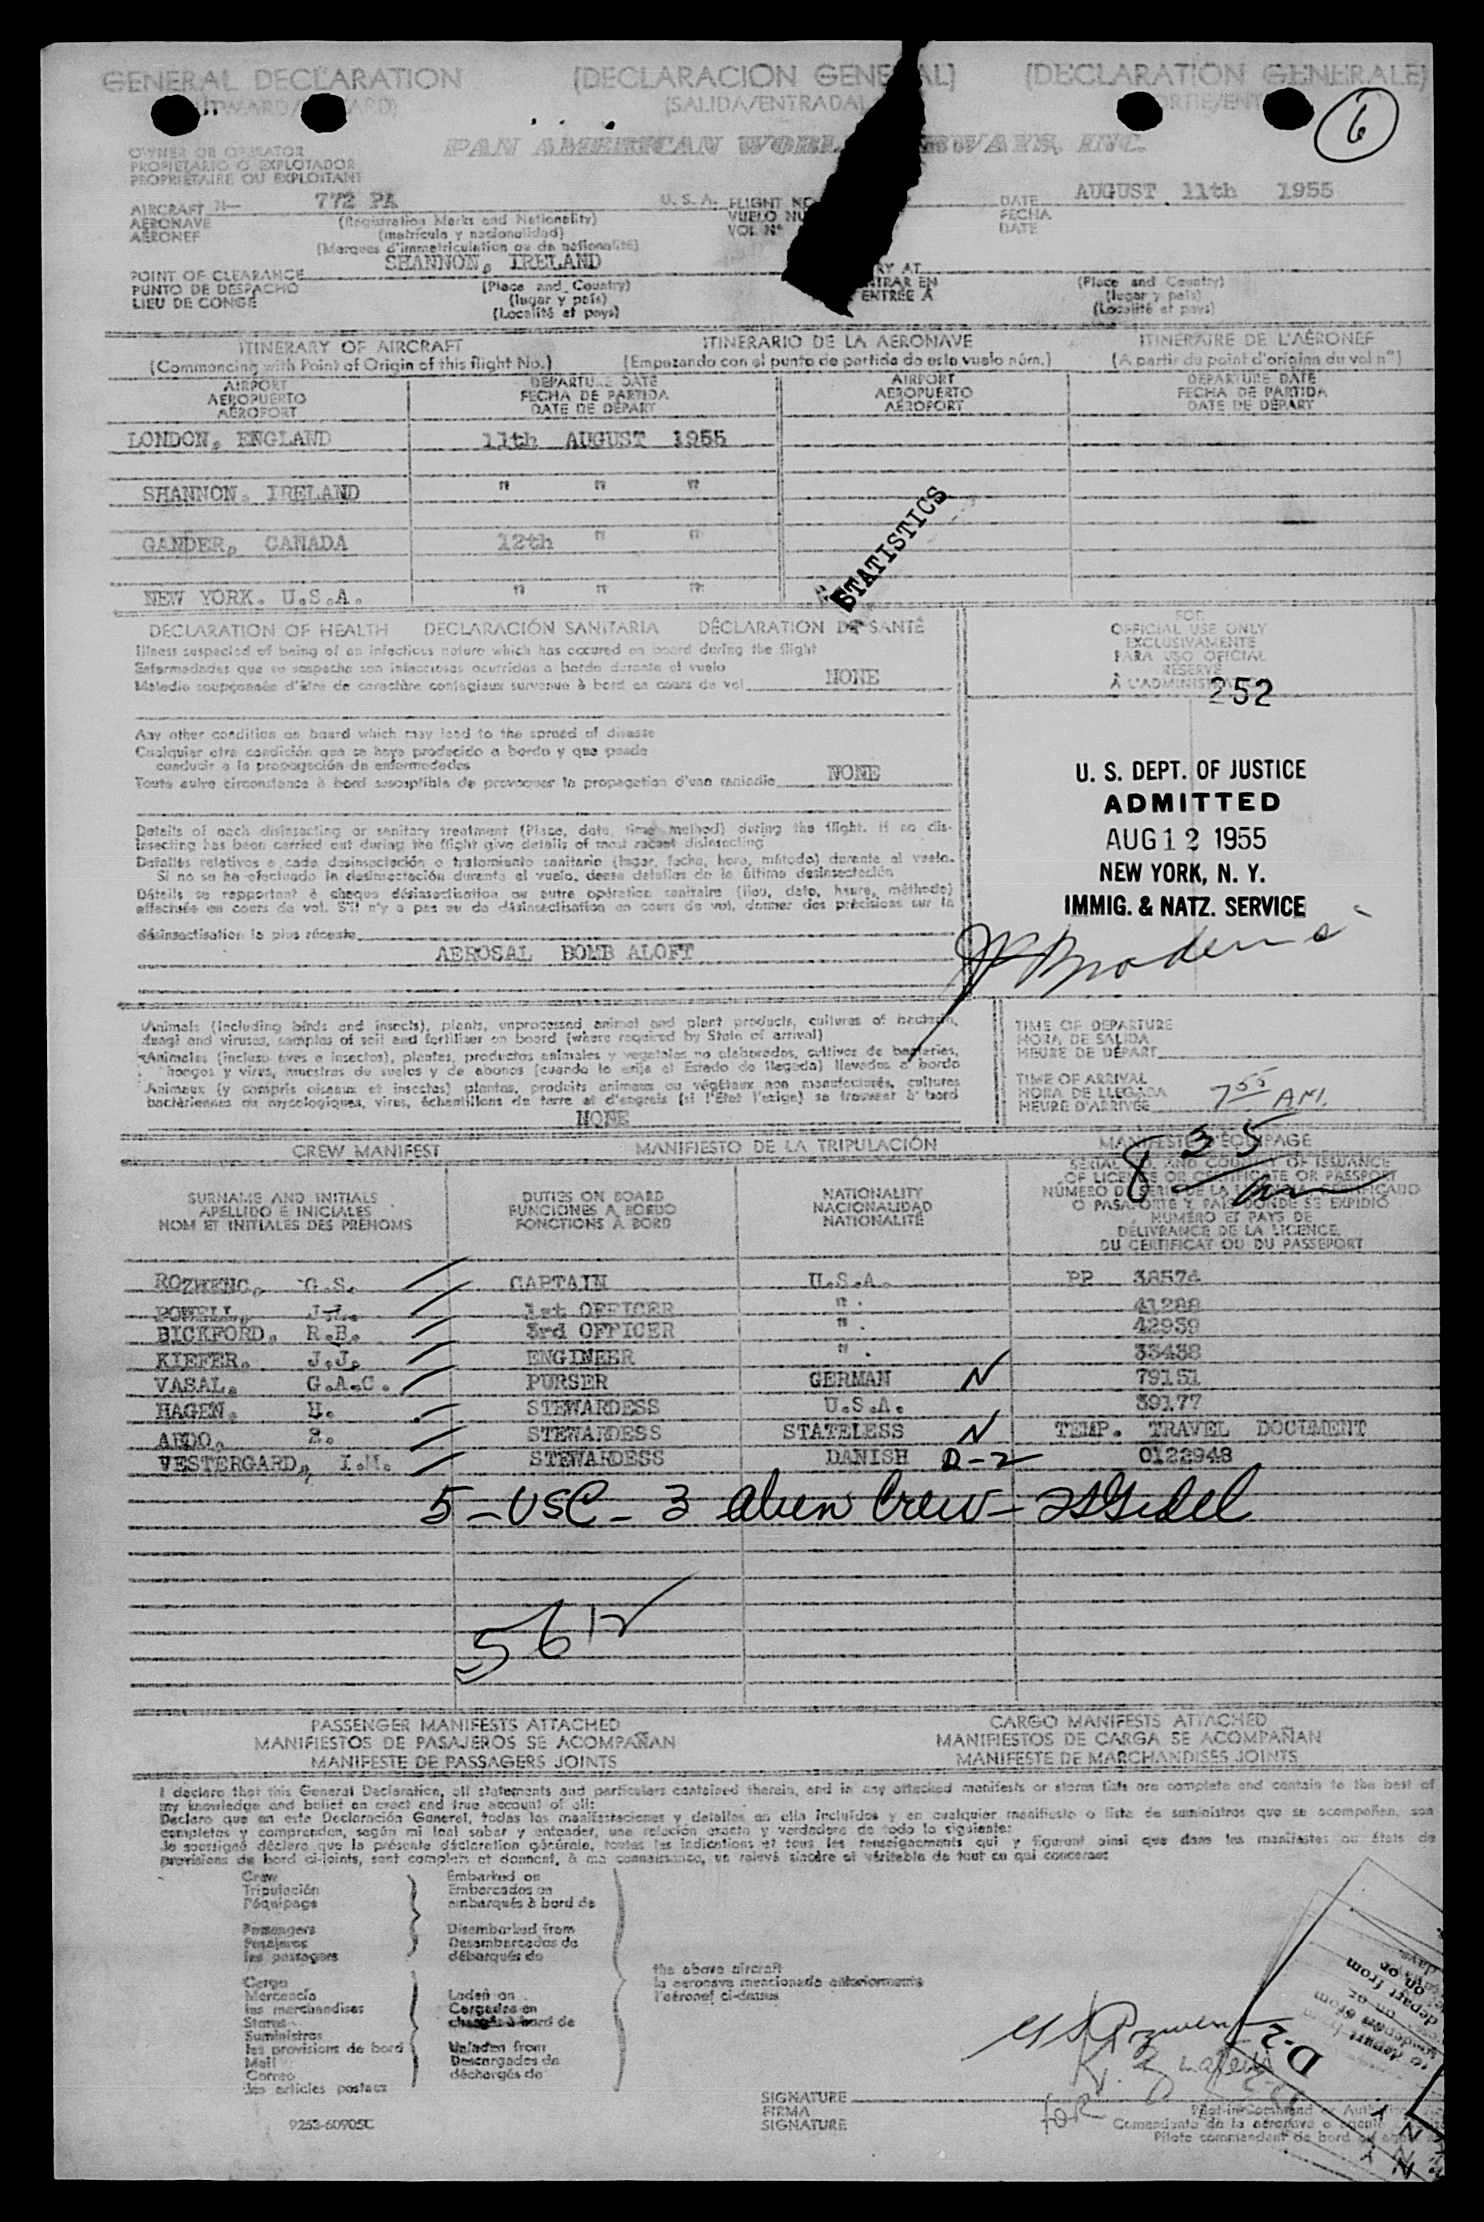 GENERAL DECLARATION (DECLARACION GENERAL) (DECLARATION GENERALE)
(SALIDA/ENTRADA)
6
PAN AMERICAN WORLD AIRWAYS, INC.
OWNER OR OPERATOR
PROPIETARIO O EXPLOTADOR
PROPRIÉTAIRE OU EXPLOITANT
AIRCRAFT N— 772 PA U. S. A. FLIGHT NO DATE AUGUST 11th 1955
AERONAVE (Registration Marks and Nationality) VUELO NU FECHA
AÉRONEF (matrícula y nacionalidad) VOL N° DATE
(Marques d'immatriculation ou de nationalité)
SHANNON, IRELAND
POINT OF CLEARANCE (Place and Country) RY AT (Place and Country)
PUNTO DE DESPACHO (lugar y país) TRAR EN (lugar y país)
LIEU DE CONGÉ (Localité et pays) ENTRÉE A (Localité et pays)
ITINERARY OF AIRCRAFT ITINERARIO DE LA AERONAVE ITINERAIRE DE L'AÉRONEF
(Commencing with Point of Origin of this flight No.) (Empezando con el punto de partida de este vuelo núm.) (A partir du point d'origine du vol n°)
AIRPORT DEPARTURE DATE AIRPORT DEPARTURE DATE
AEROPUERTO FECHA DE PARTIDA AEROPUERTO FECHA DE PARTIDA
AÉROPORT DATE DE DÉPART AÉROPORT DATE DE DÉPART
LONDON, ENGLAND 11th AUGUST 1955
SHANNON. IRELAND " " "
GANDER, CANADA 12th " "
NEW YORK. U.S.A. " " "
STATISTICS
DECLARATION OF HEALTH DECLARACIÓN SANITARIA DÉCLARATION DE SANTÉ
Illness suspected of being of an infectious nature which has occured on board during the flight
Enfermedades que se sospecha son infecciosas ocurridas a bordo durante el vuelo
Maladie soupçonnée d'être de caractère contagieux survenue à bord en cours de vol NONE
FOR
OFFICIAL USE ONLY
EXCLUSIVAMENTE
PARA USO OFICIAL
RESERVÉ
À L'ADMINIST
252
Any other condition on board which may lead to the spread of disease
Cualquier otra condición que se haya producido a bordo y que puede
conducir a la propagación de enfermedades
Toute autre circonstance à bord susceptible de provoquer la propagation d'une maladie NONE
U. S. DEPT. OF JUSTICE
ADMITTED
AUG 12 1955
NEW YORK, N. Y.
IMMIG. & NATZ. SERVICE
Details of each disinsecting or sanitary treatment (Place, date, time method) during the flight. If no dis-
insecting has been carried out during the flight give details of most recent disinsecting
Detalles relativos a cada desinsectación o tratamiento sanitario (lugar, fecha, hora, método) durante el vuelo.
Si no se ha efectuado la desinsectación durante el vuelo, dense detalles de la última desinsectación
Détails se rapportant à chaque désinsectisation ou autre opération sanitaire (lieu, date, heure, méthode)
effectuée en cours de vol. S'il n'y a pas eu de désinsectisation en cours de vol, donner des précisions sur la
désinsectisation la plus récente
AEROSAL BOMB ALOFT
Animals (including birds and insects), plants, unprocessed animal and plant products, cultures of bacteria,
fungi and viruses, samples of soil and fertiliser on board (where required by State of arrival)
Animales (incluso aves e insectos), plantas, productos animales y vegetales no elaborados, cultivos de bacterias,
hongos y virus, muestras de suelos y de abonos (cuando lo exija el Estado de llegada) llevados a bordo
Animaux (y compris oiseaux et insectes) plantes, produits animaux ou végétaux non manufacturés, cultures
bactériennes ou mycologiques, virus, échantillons de terre et d'engrais (si l'État l'exige) se trouvant à bord
NONE
TIME OF DEPARTURE
HORA DE SALIDA
HEURE DE DÉPART
TIME OF ARRIVAL
HORA DE LLEGADA
HEURE D'ARRIVÉE 7 55 AM.
8 35 am
CREW MANIFEST MANIFIESTO DE LA TRIPULACIÓN MANIFESTE D'ÉQUIPAGE
SURNAME AND INITIALS DUTIES ON BOARD NATIONALITY SERIAL NO. AND COUNTRY OF ISSUANCE
APELLIDO E INICIALES FUNCIONES A BORDO NACIONALIDAD OF LICENCE OR CERTIFICATE OR PASSPORT
NOM ET INITIALES DES PRÉNOMS FONCTIONS À BORD NATIONALITÉ NÚMERO DE SERIE DE LA LICENCIA, CERTIFICADO
O PASAPORTE Y PAÍS DONDE SE EXPIDIÓ
NUMÉRO ET PAYS DE
DÉLIVRANCE DE LA LICENCE,
DU CERTIFICAT OU DU PASSEPORT
G.S. CAPTAIN U.S.A. PP 38574
POWELL, J.L. 1st OFFICER " 41288
BICKFORD. R.B. 3rd OFFICER " 42959
KIEFER. J.J. ENGINEER " 33438
VASAL. G.A.C. PURSER GERMAN N 79151
HAGEN. U. STEWARDESS U.S.A. 39177
ABDO. STEWARDESS STATELESS N TEMP. TRAVEL DOCUMENT
VESTERGARD, I.M. STEWARDESS DANISH D-2 0122948
5 - USC - 3 alien Crew -
56 12
PASSENGER MANIFESTS ATTACHED CARGO MANIFESTS ATTACHED
MANIFIESTOS DE PASAJEROS SE ACOMPAÑAN MANIFIESTOS DE CARGA SE ACOMPAÑAN
MANIFESTE DE PASSAGERS JOINTS MANIFESTE DE MARCHANDISES JOINTS
I declare that this General Declaration, all statements and particulars contained therein, and in any attached manifests or stores lists are complete and contain to the best of
my knowledge and belief an exact and true account of all:
Declaro que en esta Declaración General, todas las manifestaciones y detalles en ella incluídos y en cualquier manifiesto o lista de suministros que se acompañen, son
completos y comprenden, según mi leal saber y entender, una relación exacta y verdadera de todo lo siguiente:
Je soussigné déclare que la présente déclaration générale, toutes les indications et tous les renseignements qui y figurent ainsi que dans les manifestes ou états de
provisions de bord ci-joints, sont complets et donnent, à ma connaissance, un relevé sincère et véritable de tout ce qui concerne:
Crew Embarked on
Tripulación Embarcados en
l'équipage embarqués à bord de
Passengers Disembarked from
Pasajeros Desembarcados de
les passagers débarqués de
the above aircraft
la aeronave mencionada anteriormente
l'aéronef ci-dessus
Cargo
Mercancía Laden on
les marchandises Cargados en
Stores chargés à bord de
Suministros
les provisions de bord Unladen from
Mail Descargados de
Correo déchargés de
les articles postaux
D-2
SIGNATURE
FIRMA
SIGNATURE
for
Pilot-in-Command or
Comandante de la aeronave o agente
Pilote commandant de bord ou
9253-60905C